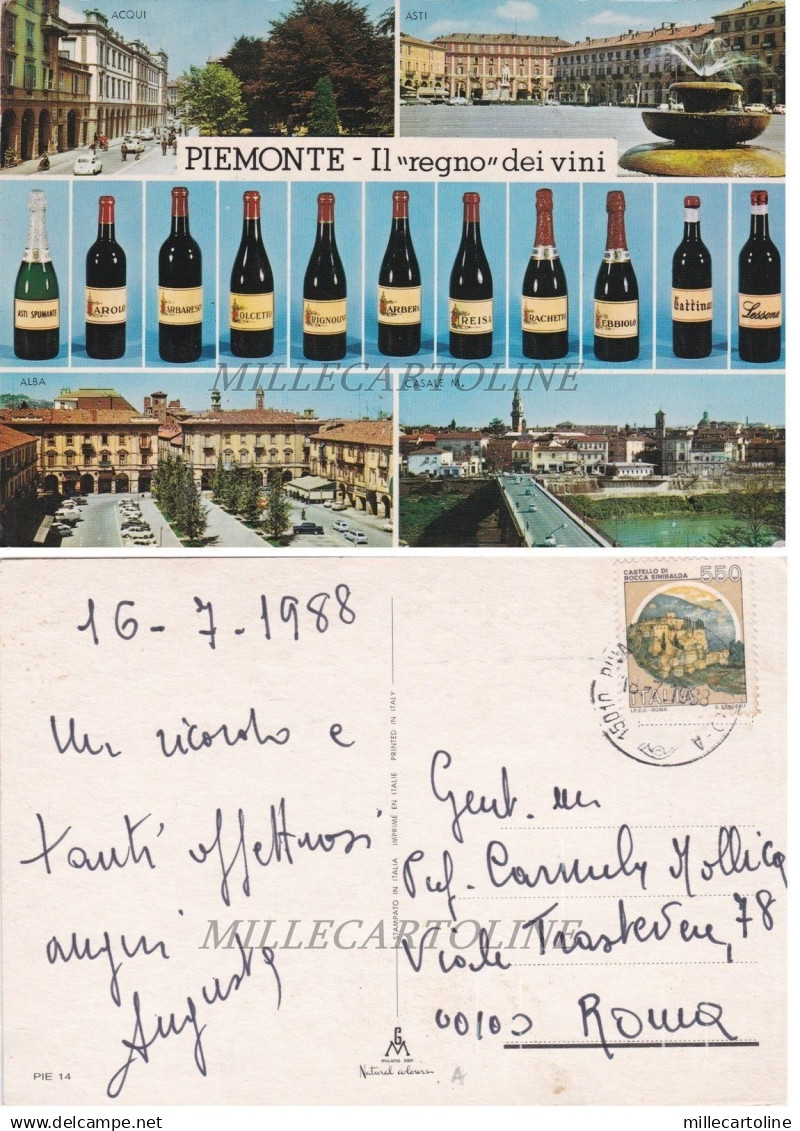 ACQUI
ASTI
PIEMONTE - Il "regno" dei vini
ASTI SPUMANTE
BAROLO
BARBARESCO
DOLCETTO
GRIGNOLINO
BARBERA
FREISA
BRACHETTO
NEBBIOLO
Gattinara
Lessona
MILLECARTOLINE
ALBA
CASALE M.
16-7.1988
Un ricordo e
tanti affettuosi
auguri
Augusta
PIE 14
STAMPATO IN ITALIA IMPRIMÉ EN ITALIE PRINTED IN ITALY
CASTELLO DI
ROCCA SINIBALDA
550
ITALIA
I.P.Z.S.-ROMA
15010
Gent.
Prof. Carmela Mollica
Viale Trastevere, 78
00100 Roma
MILLECARTOLINE
GM
MILANO DEP.
Natural colours
A
delcampe.net
millecartoline